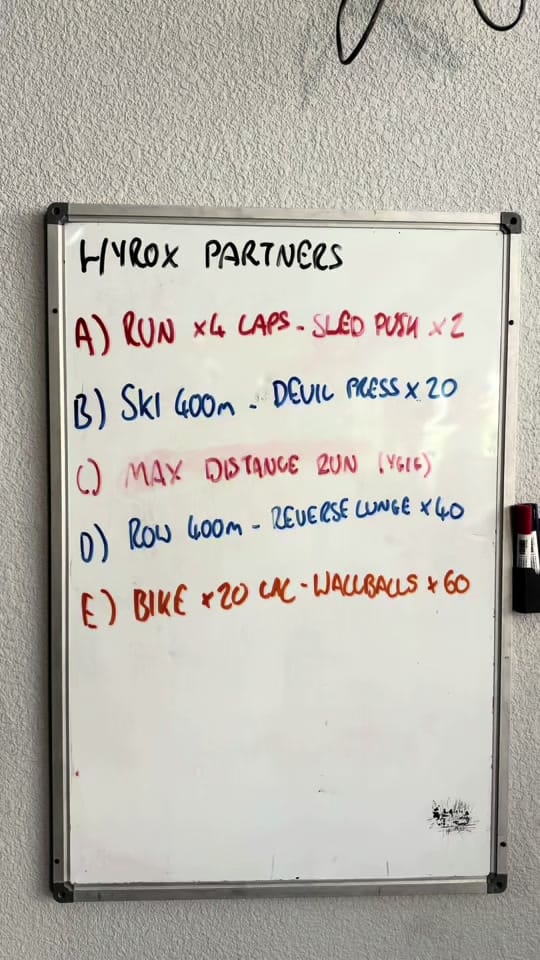 HYROX PARTNERS
A) RUN x4 LAPS - SLED PUSH x2
B) SKI 400m - DEVIL PRESS x 20
C) MAX DISTANCE RUN (YGIG)
D) ROW 400m - REVERSE LUNGE x40
E) BIKE x20 CAL - WALLBALLS x 60